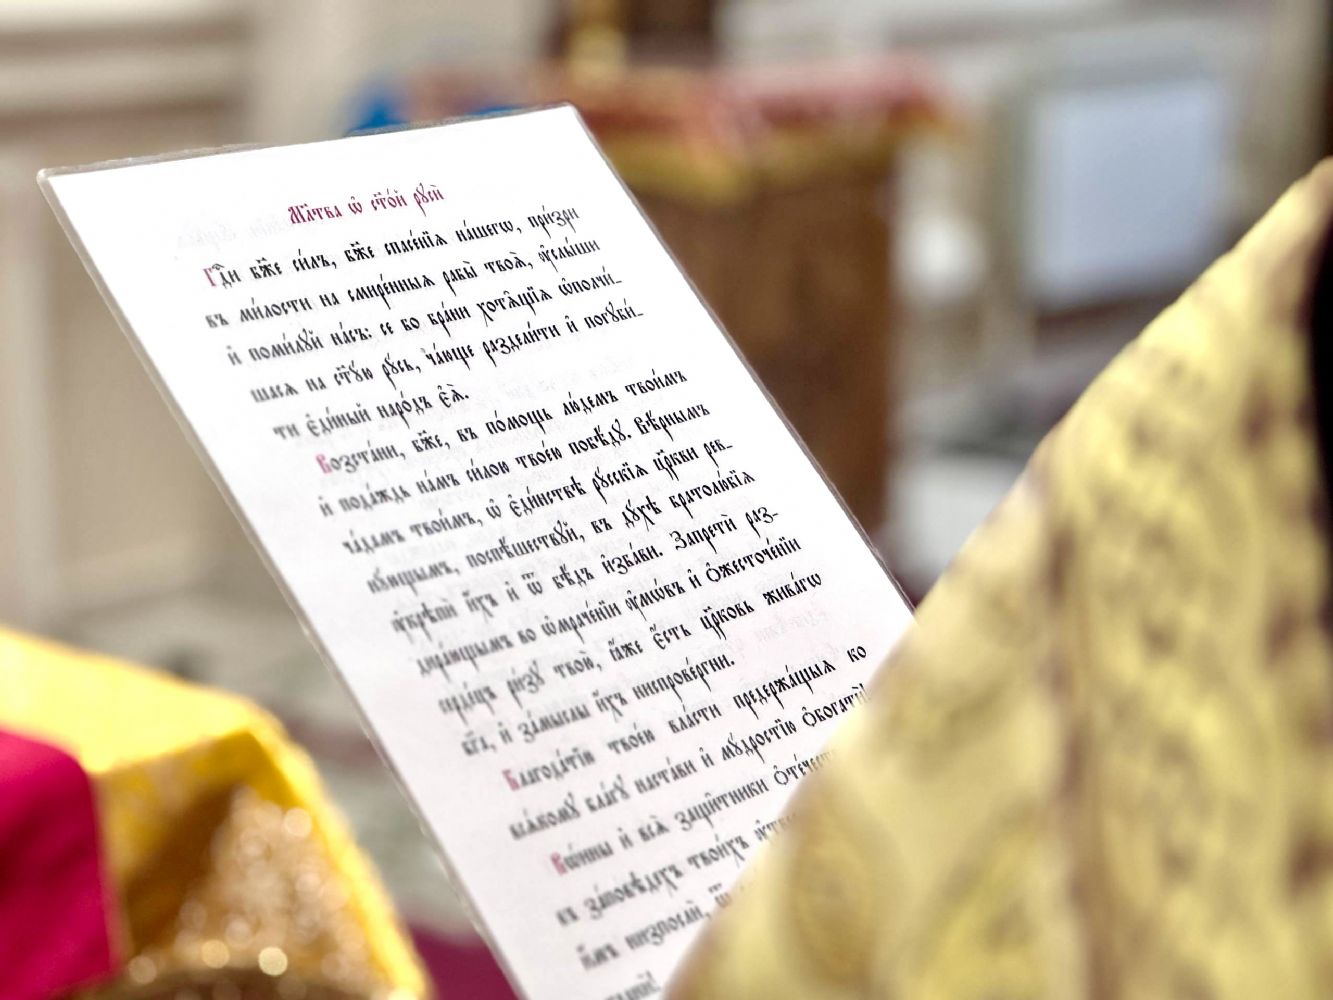 Мл҃тва ѡ҆ ст҃о́й рꙋсѝ
Гдⷭ҇и бж҃е си́лъ, бж҃е спасе́нїѧ на́шегѡ, при́зри
въ ми́лости на смирє́нныѧ рабы̑ твоѧ̑, ᲂу҆слы́ши
и҆ поми́лꙋй на́съ: се бо бра́ни хотѧ́щїи ѡ҆полчи́_
шасѧ на ст҃ꙋ́ю рꙋ́сь, ча́юще раздели́ти и҆ погꙋби́_
ти є҆ди́ный наро́дъ є҆ѧ̀.
Возста́ни, бж҃е, въ по́мощь лю́демъ твои̑мъ
и҆ пода́ждь на́мъ си́лою твое́ю побѣ́дꙋ. Вѣ̑рнымъ
ча́дамъ твои̑мъ, ѡ҆ є҆ди́нствѣ рꙋ́сскїѧ цр҃кви рев_
ни́щымъ, поспѣ́шествꙋй, въ дꙋ́хѣ братолю́бїѧ
ᲂу҆крѣпѝ и҆̀хъ и҆ ѿ бѣ́дъ и҆зба́ви. Запретѝ раз_
дира́ющымъ во ѡ҆мраче́нїи ᲂу҆мѡ́въ и҆ ѻ҆жесточе́нїи
серде́цъ ри́зꙋ твою̀, ꙗ҆́же є҆́сть цр҃ковь жива́гѡ
бг҃а, и҆ за́мыслы и҆́хъ ниспрове́ргни.
Благода́тїю твое́ю вла́сти предержа́щыѧ ко
всѧ́комꙋ бла́гꙋ наста́ви и҆ мꙋ́дростїю ѻ҆богатѝ!
Во́ины и҆ всѧ̑ защи́тники ѻ҆те́чест
въ за́повѣдехъ твои́хъ
и҆̀мъ низпослѝ,